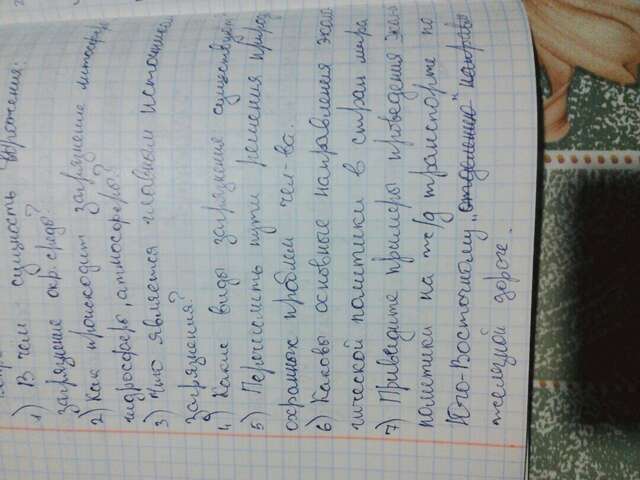 1) В чем сущность выражения:
загрязнение окр. среды?
2) Как происходит загрязнение литосферы
гидросферы, атмосферы?
3) Что является главным источником
загрязнения?
4) Какие виды загрязнения существуют?
5) Перечислить пути решения природо
охранных проблем чел-ва.
6) Каковы основные направления эколо
гической политики в стран мира
7) Приведите примеры проведения экол
политики на ж/д транспорте по
Юго-Восточному "отделению"
железной дороге.